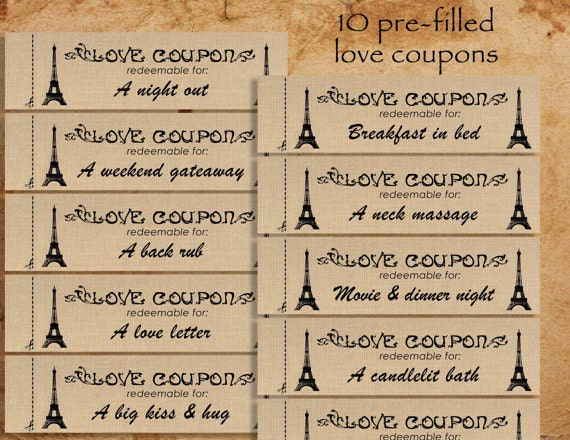 10 pre-filled
love coupons
LOVE COUPONS
redeemable for:
A night out
LOVE COUPONS
redeemable for:
A weekend gateaway
LOVE COUPONS
redeemable for:
A back rub
LOVE COUPONS
redeemable for:
A love letter
LOVE COUPONS
redeemable for:
A big kiss & hug
LOVE COUPONS
redeemable for:
Breakfast in bed
LOVE COUPONS
redeemable for:
A neck massage
LOVE COUPONS
redeemable for:
Movie & dinner night
LOVE COUPONS
redeemable for:
A candlelit bath
LOVE COUPONS
redeemable for: